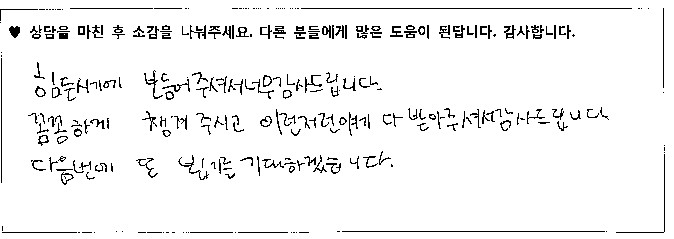 ♥ 상담을 마친 후 소감을 나눠주세요. 다른 분들에게 많은 도움이 된답니다. 감사합니다.
힘든시기에 보듬어주셔서너무감사드립니다.
꼼꼼하게 챙겨주시고 이런저런얘기 다 받아주셔서감사드립니다
다음번에 또 뵙기를 기대하겠습니다.